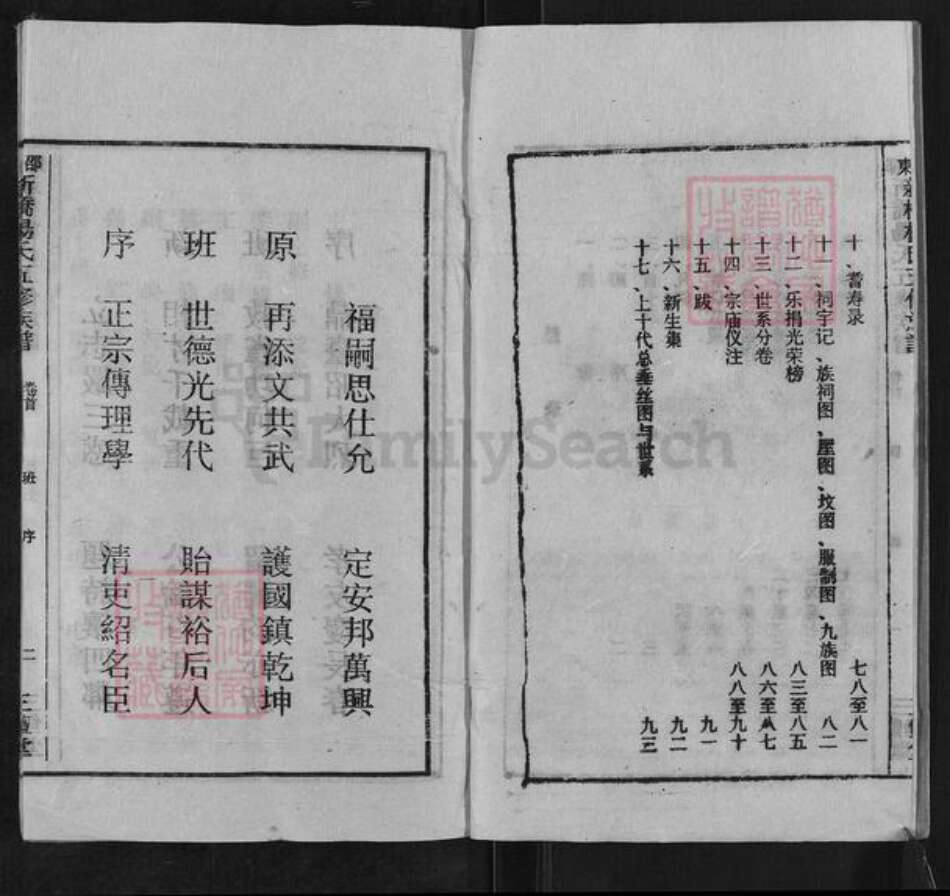 十、耆寿录 七八至八一
十一、祠宇记、族祠图、墅图、坟图、服制图、九族图 八二
十二、乐捐光荣榜 八三至八五
十三、世系分卷 八六至八七
十四、宗庙仪注 八八至九十
十五、跋 九一
十六、新生枣 九二
十七、上十代总垂丝图与世系 九三
福嗣思仕允 定安邦萬興
原 再添文共武 護國鎮乾坤
班 世德光先代 貽謀裕后人
序 正宗傳理學 清吏紹名臣
邵 新橋楊氏五修族譜 卷首 班序 二
FamilySearch